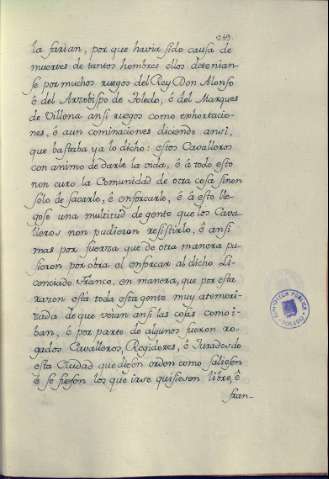 249.
la farian, por que havia sido causa de
muertes de tantos hombres ellos detenian-
se por muchos ruegos del Rey Don Alonso
ó del Arzobispo de Toledo, ó del Marques
de Villena ansi ruegos como exhortacio-
nes, ó aun cominaciones diciendo ansi,
que bastaba ya lo dicho: estos Cavalleros
con animo de darle la vida, é á todo esto
non curo la Comunidad de otra cosa sinon
solo de sacarle, é enforcarle, é á esto lle-
gose una multitud de gente que los Cava-
lleros non pudieron resistirlo, é ansi
mas por fuerza que de otra manera pu-
sieron por obra el enforcar al dicho Li-
cenciado Franco, en manera, que por esta
razon esta toda esta gente muy atemori-
zada de que veian ansi las cosas como i-
ban, é por parte de algunos fueron ro-
gados Cavalleros, Regidores, é Jurados de
esta Ciudad que diesen orden como saliesen
é se fuesen los que irse quisiesen libre, é
fran-
BIBLIOTECA PUBLICA
TOLEDO